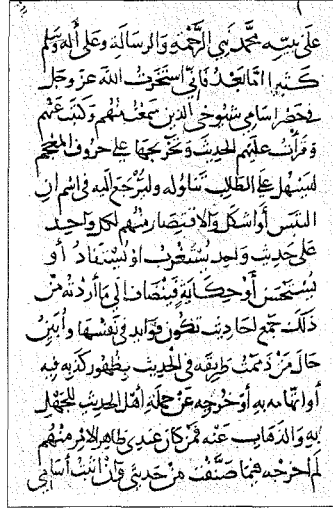 على نبيه محمد نبي الرحمة والرسالة وعلى آله وسلم
كثيرا أما بعد فاني استخرت الله عز وجل
في حصر اسامي شيوخي الذين سمعت منهم وكتبت عنهم
وقرأت عليهم الحديث وتخريجها على حروف المعجم
ليسهل على الطالب تناوله وليرجع اليه في اسم ان
التبس أو اشكل والاقتصار منهم لكل واحد
على حديث واحد يستغرب او يستفاد أو
يستحسن أو حكاية فينضاف الى ما أردته من
ذلك جمع احاديث تكون فوايد في نفسها وأبين
حال من ذممت طريقه في الحديث بظهور كذبه فيه
أو اتهامه به أو خروجه عن جملة أهل الحديث للجهل
به والذهاب عنه فمن كان عندي ظاهر الامر منهم
لم اخرجه فيما صنفت من حديثي وان اثبت أسامي